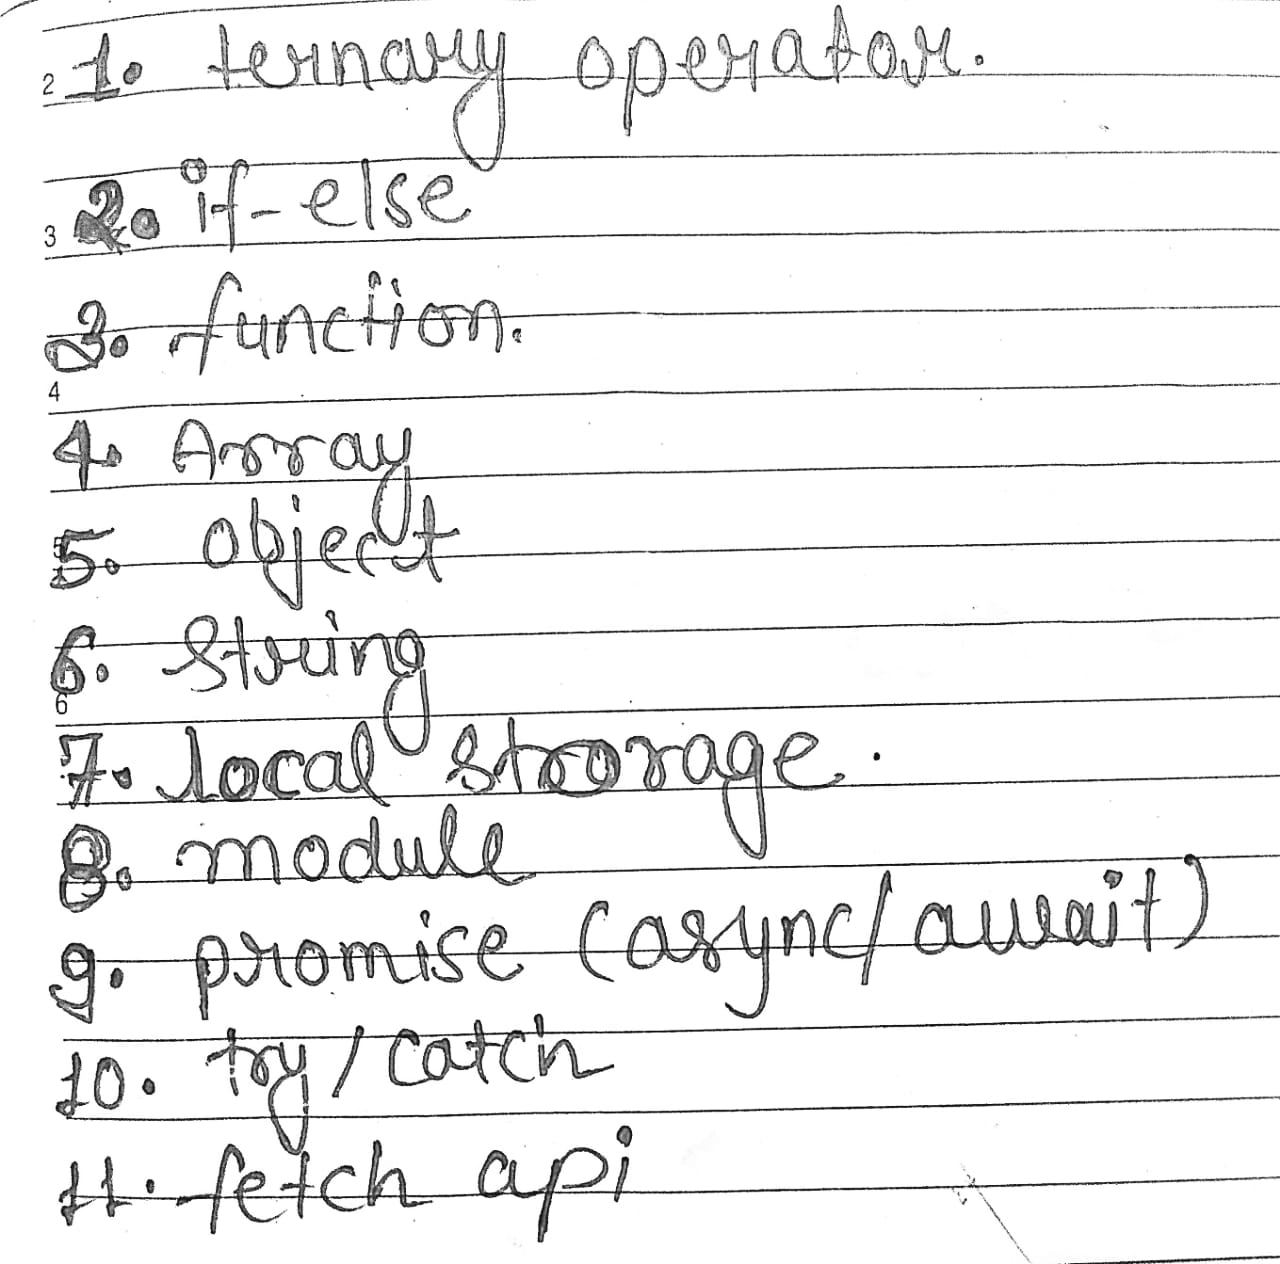 1. ternary operator.
2. if-else
3. function.
4. Array
5. object
6. String
7. local storage.
8. module
9. promise (async/await)
10. try/catch
11. fetch api